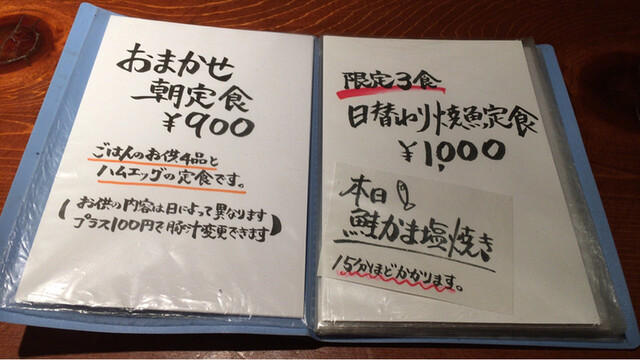 おまかせ
朝定食
¥900
ごはんのお供4品と
ハムエッグの定食です。
(お供の内容は日によって異なります
プラス100円で豚汁変更できます)
限定3食
日替わり焼魚定食
¥1,000
本日
鮭かま塩焼き
15分ほどかかります。